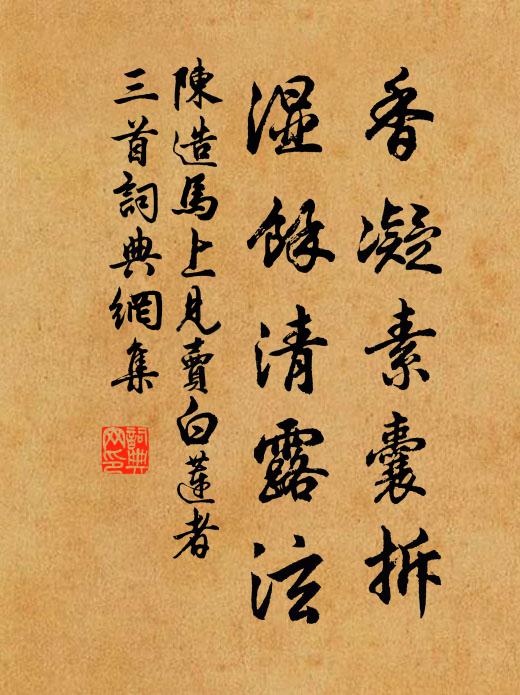 香凝素囊拆
濕餘清露泫
陳造馬上見賣白蓮者
三首詞典網集
詞典
网印